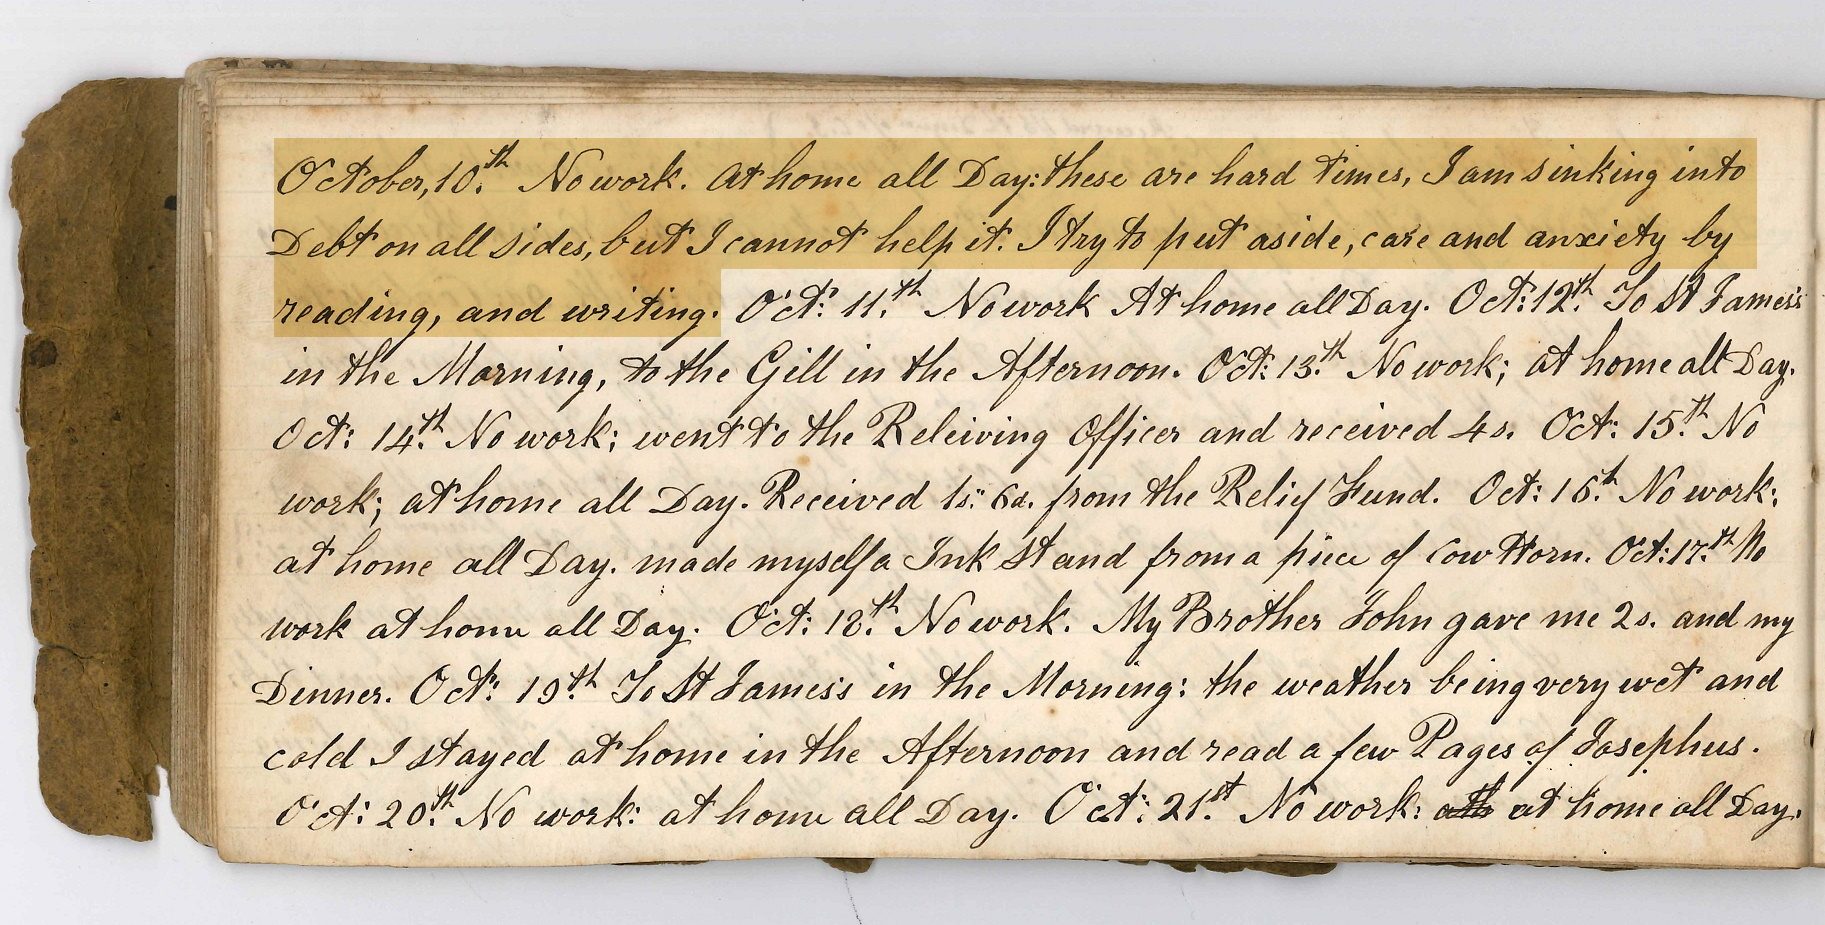 October, 10.th No work. At home all Day: these are hard times, I am sinking into
Debt on all sides, but I cannot help it. I try to put aside, care and anxiety by
reading, and writing. Oct: 11.th No work At home all Day. Oct: 12.th To St James's
in the Morning, to the Gill in the Afternoon. Oct: 13.th No work; at home all Day.
Oct: 14.th No work; went to the Releiving Officer and received 4s. Oct: 15.th No
work; at home all Day. Received 1s: 6d. from the Relief Fund. Oct: 16.th No work:
at home all Day. made myself a Ink Stand from a piece of Cow Horn. Oct: 17.th No
work at home all Day. Oct: 18.th No work. My Brother John gave me 2s. and my
Dinner. Oct: 19.th To St James's in the Morning: the weather being very wet and
cold I stayed at home in the Afternoon and read a few Pages of Josephus.
Oct: 20.th No work: at home all Day. Oct: 21.st No work: at home all Day.